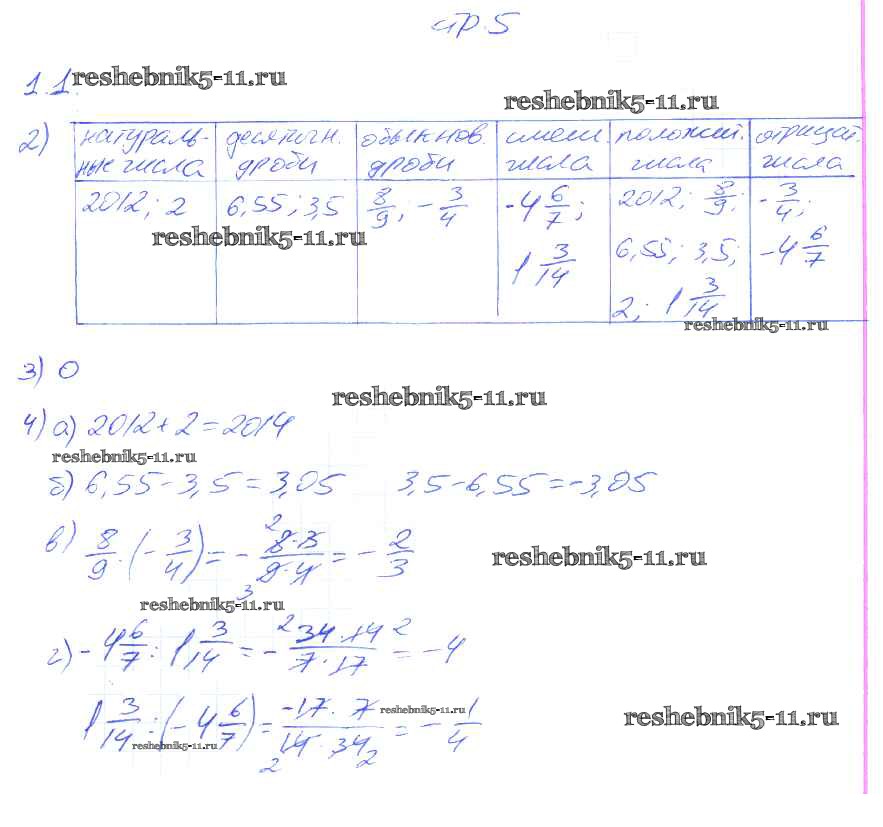 стр.5
1.1. reshebnik5-11.ru
reshebnik5-11.ru
2) натураль- десятичн. обыкнов. смеш. положит. отрицат.
ные числа дроби дроби числа числа числа
2012; 2 6,55; 3,5 8/9; -3/4 -4 6/7; 2012; 8/9; -3/4;
reshebnik5-11.ru
1 3/14 6,55; 3,5; -4 6/7
2; 1 3/14
reshebnik5-11.ru
3) 0
reshebnik5-11.ru
4) а) 2012+2=2014
reshebnik5-11.ru
б) 6,55-3,5=3,05 3,5-6,55=-3,05
в) 8/9·(-3/4)=-8·3/9·4=-2/3
2
3
reshebnik5-11.ru
reshebnik5-11.ru
г) -4 6/7:1 3/14=-34·14/7·17=-4
2 2
1 3/14:(-4 6/7)=-17·7/14·34=-1/4
2 2
reshebnik5-11.ru
reshebnik5-11.ru
reshebnik5-11.ru